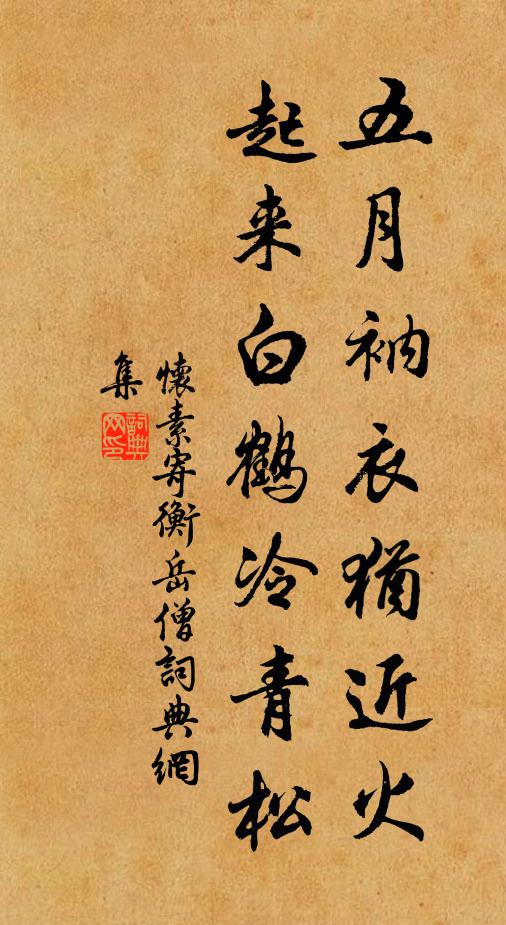 五月衲衣犹近火
起来白鶴冷青松
懷素寄衡岳僧詞典網
集
詞典
网印